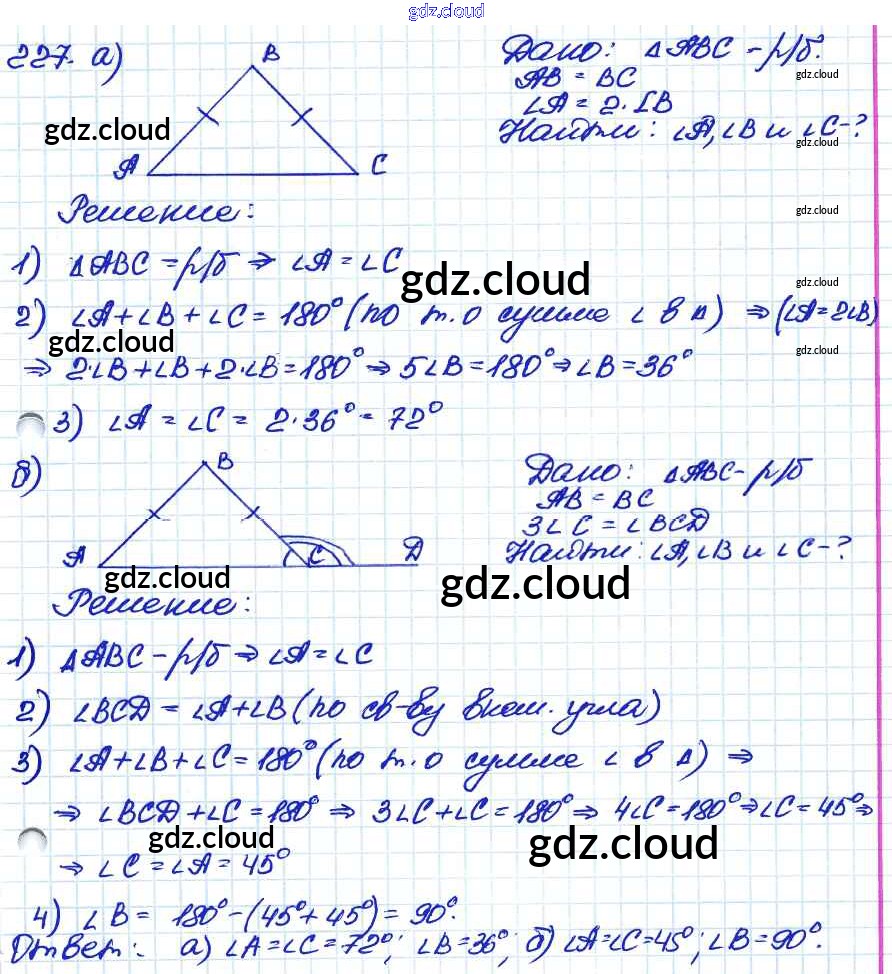 gdz.cloud
227. а)
B
A
C
gdz.cloud
Дано: △ABC – р/б.
AB = BC
∠A = 2·∠B
Найти: ∠A, ∠B и ∠C – ?
gdz.cloud
gdz.cloud
Решение:
gdz.cloud
1) △ABC = р/б ⇒ ∠A = ∠C
gdz.cloud
gdz.cloud
2) ∠A + ∠B + ∠C = 180° (по т. о сумме ∠ в △) ⇒ (∠A = 2∠B)
gdz.cloud
gdz.cloud
⇒ 2·∠B + ∠B + 2·∠B = 180° ⇒ 5∠B = 180° ⇒ ∠B = 36°
3) ∠A = ∠C = 2·36° = 72°
б)
B
A
C
D
gdz.cloud
Дано: △ABC – р/б
AB = BC
3∠C = ∠BCD
Найти: ∠A, ∠B и ∠C – ?
gdz.cloud
Решение:
1) △ABC – р/б ⇒ ∠A = ∠C
2) ∠BCD = ∠A + ∠B (по св-ву внеш. угла)
3) ∠A + ∠B + ∠C = 180° (по т. о сумме ∠ в △) ⇒
⇒ ∠BCD + ∠C = 180° ⇒ 3∠C + ∠C = 180° ⇒ 4∠C = 180° ⇒ ∠C = 45° ⇒
gdz.cloud
gdz.cloud
⇒ ∠C = ∠A = 45°
4) ∠B = 180° – (45° + 45°) = 90°.
Ответ: а) ∠A = ∠C = 72°; ∠B = 36°; б) ∠A = ∠C = 45°; ∠B = 90°.